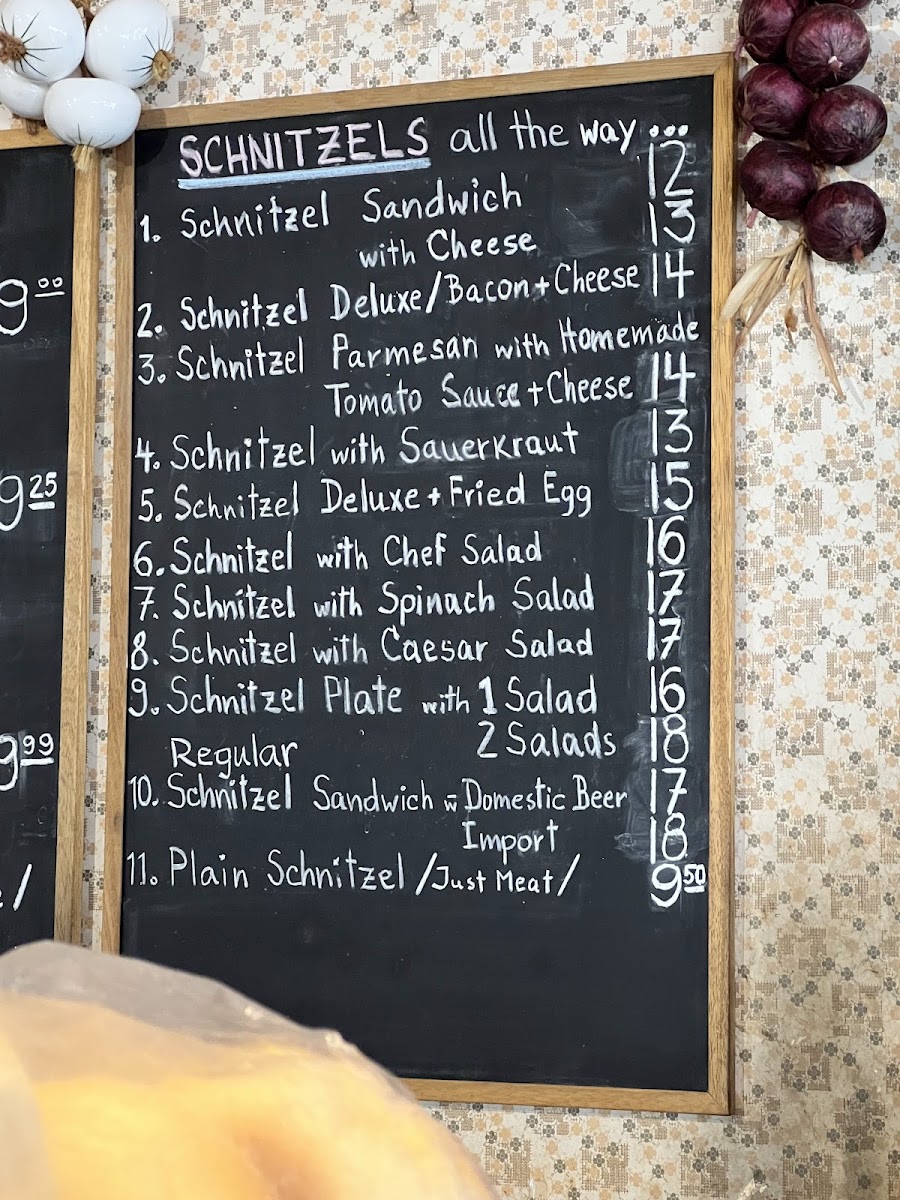 SCHNITZELS all the way...
1. Schnitzel Sandwich 12
with Cheese 13
2. Schnitzel Deluxe/Bacon+Cheese 14
3. Schnitzel Parmesan with Homemade
Tomato Sauce+Cheese 14
4. Schnitzel with Sauerkraut 13
5. Schnitzel Deluxe+Fried Egg 15
6. Schnitzel with Chef Salad 16
7. Schnitzel with Spinach Salad 17
8. Schnitzel with Caesar Salad 17
9. Schnitzel Plate with 1 Salad 16
Regular 2 Salads 18
10. Schnitzel Sandwich w̄ Domestic Beer 17
Import 18
11. Plain Schnitzel /Just Meat/ 9 50
9 00
9 25
9 99
/